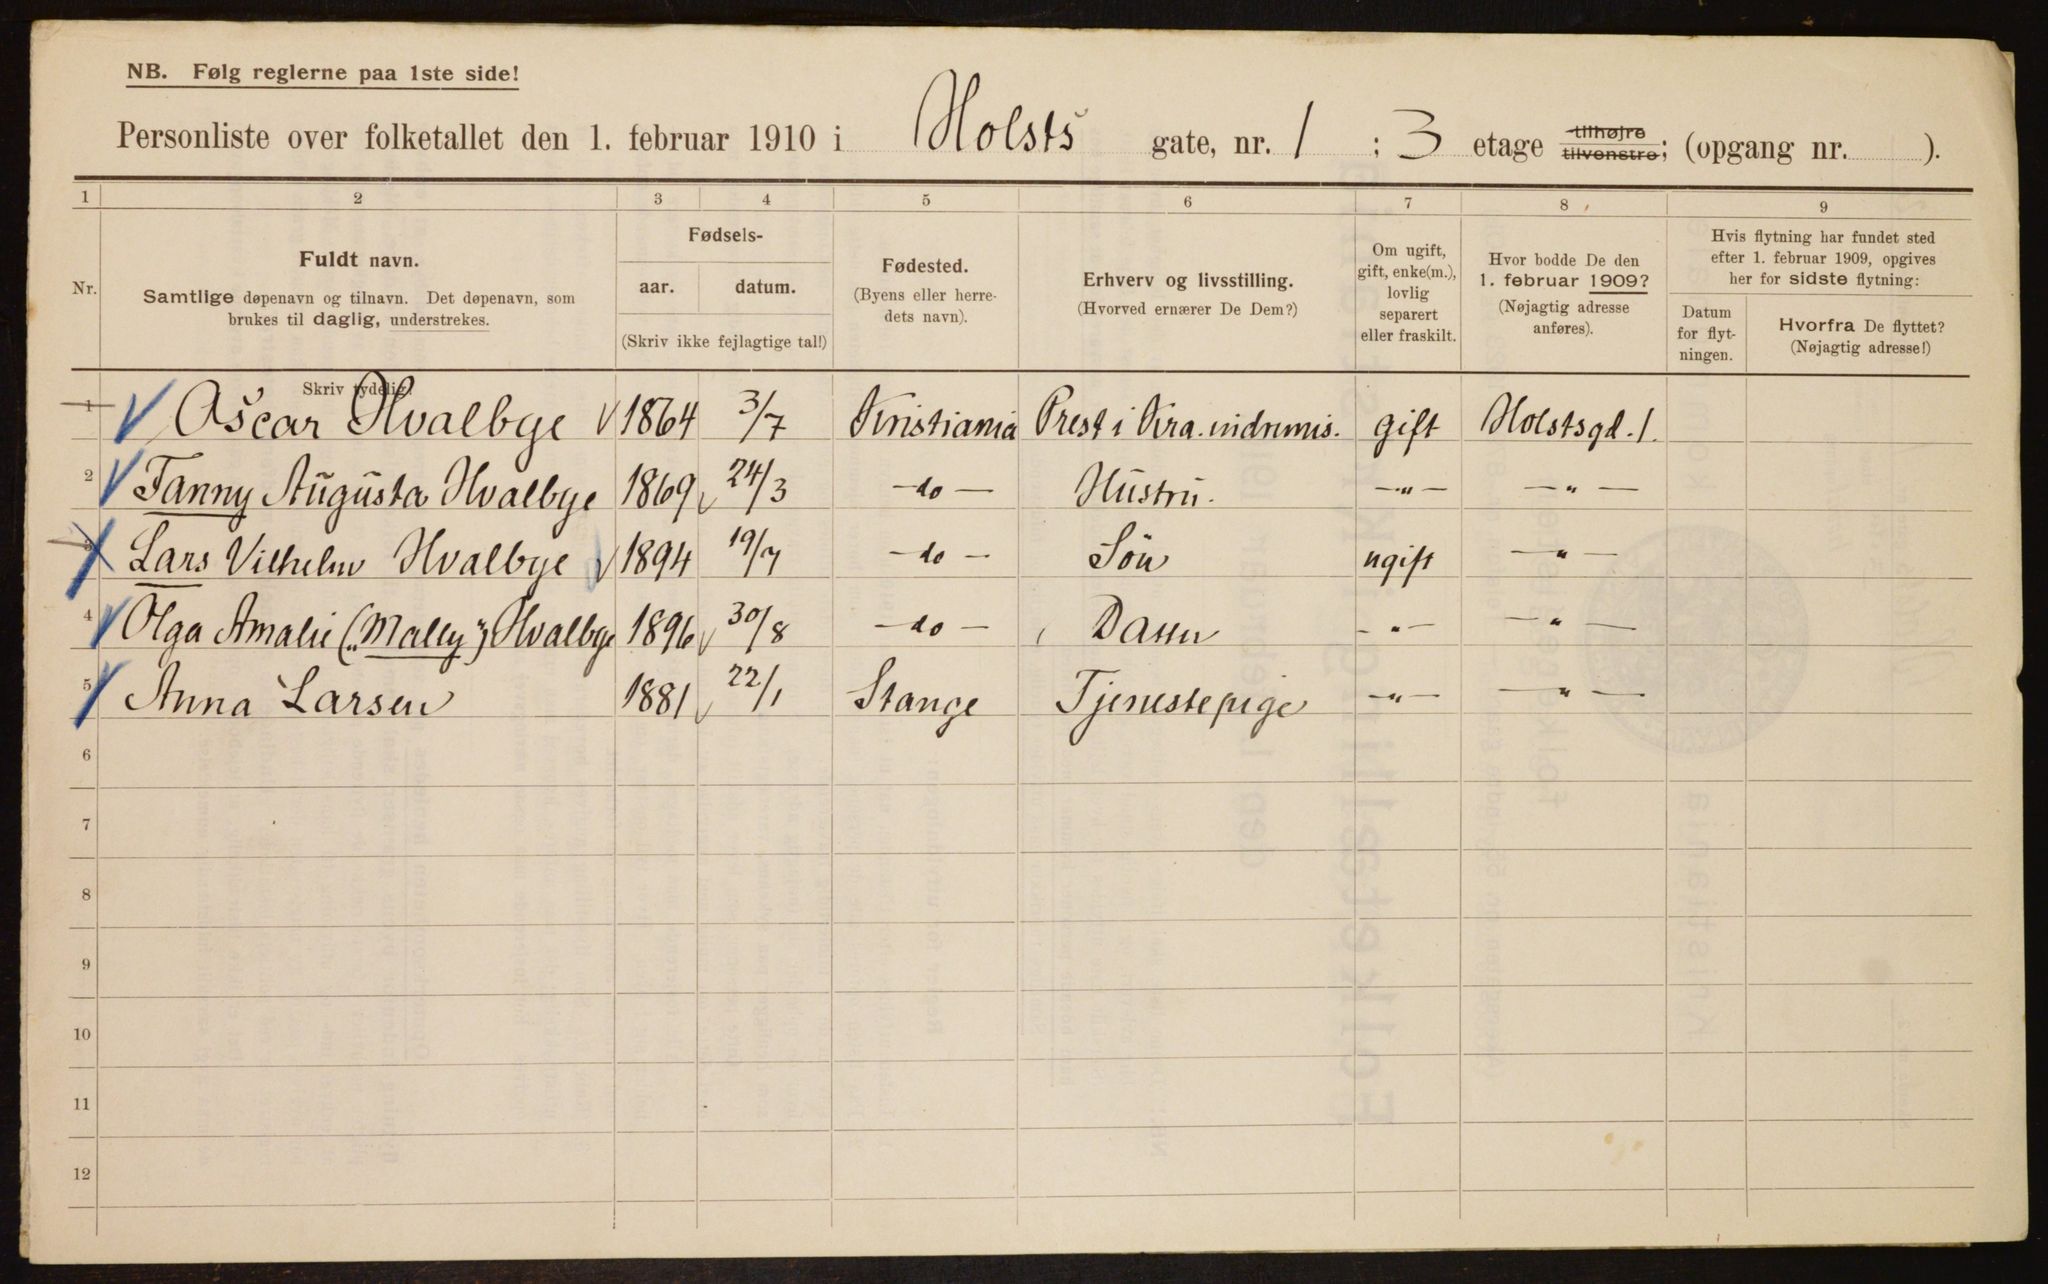 NB. Følg reglerne paa 1ste side!
Personliste over folketallet den 1. februar 1910 i Holsts gate, nr. 1 ; 3 etage tilhøjre tilvenstre; (opgang nr. ).
1 2 3 4 5 6 7 8 9
Nr.
Fuldt navn.
Samtlige døpenavn og tilnavn. Det døpenavn, som
brukes til daglig, understrekes.
Skriv tydelig!
Fødsels-
aar. datum.
(Skriv ikke fejlagtige tal!)
Fødested.
(Byens eller herre-
dets navn).
Erhverv og livsstilling.
(Hvorved ernærer De Dem?)
Om ugift,
gift, enke(m.),
lovlig
separert
eller fraskilt.
Hvor bodde De den
1. februar 1909?
(Nøjagtig adresse
anføres).
Hvis flytning har fundet sted
efter 1. februar 1909, opgives
her for sidste flytning:
Datum
for flyt-
ningen.
Hvorfra De flyttet?
(Nøjagtig adresse!)
1 Oscar Hvalbye 1864 3/7 Kristiania Prest i Kra. indremis. gift Holstsgd. 1.
2 Fanny Augusta Hvalbye 1869 24/3 —do— Hustru. —"— —"—
3 Lars Vilhelm Hvalbye 1894 19/7 —do— Sön ugift —"—
4 Olga Amalie („Mally") Hvalbye 1896 30/8 —do— Datter —"— —"—
5 Anna Larsen 1881 22/1 Stange Tjenestepige —"— —"—
6
7
8
9
10
11
12